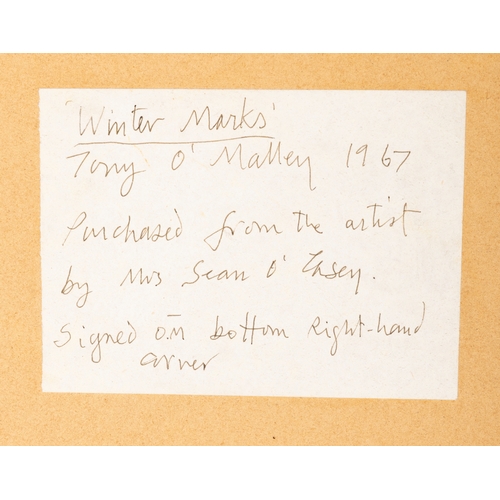 'Winter Marks'
Tony O'Malley 1967
Purchased from the artist
by Mrs Sean O'Casey.
Signed on bottom Right-hand
corner